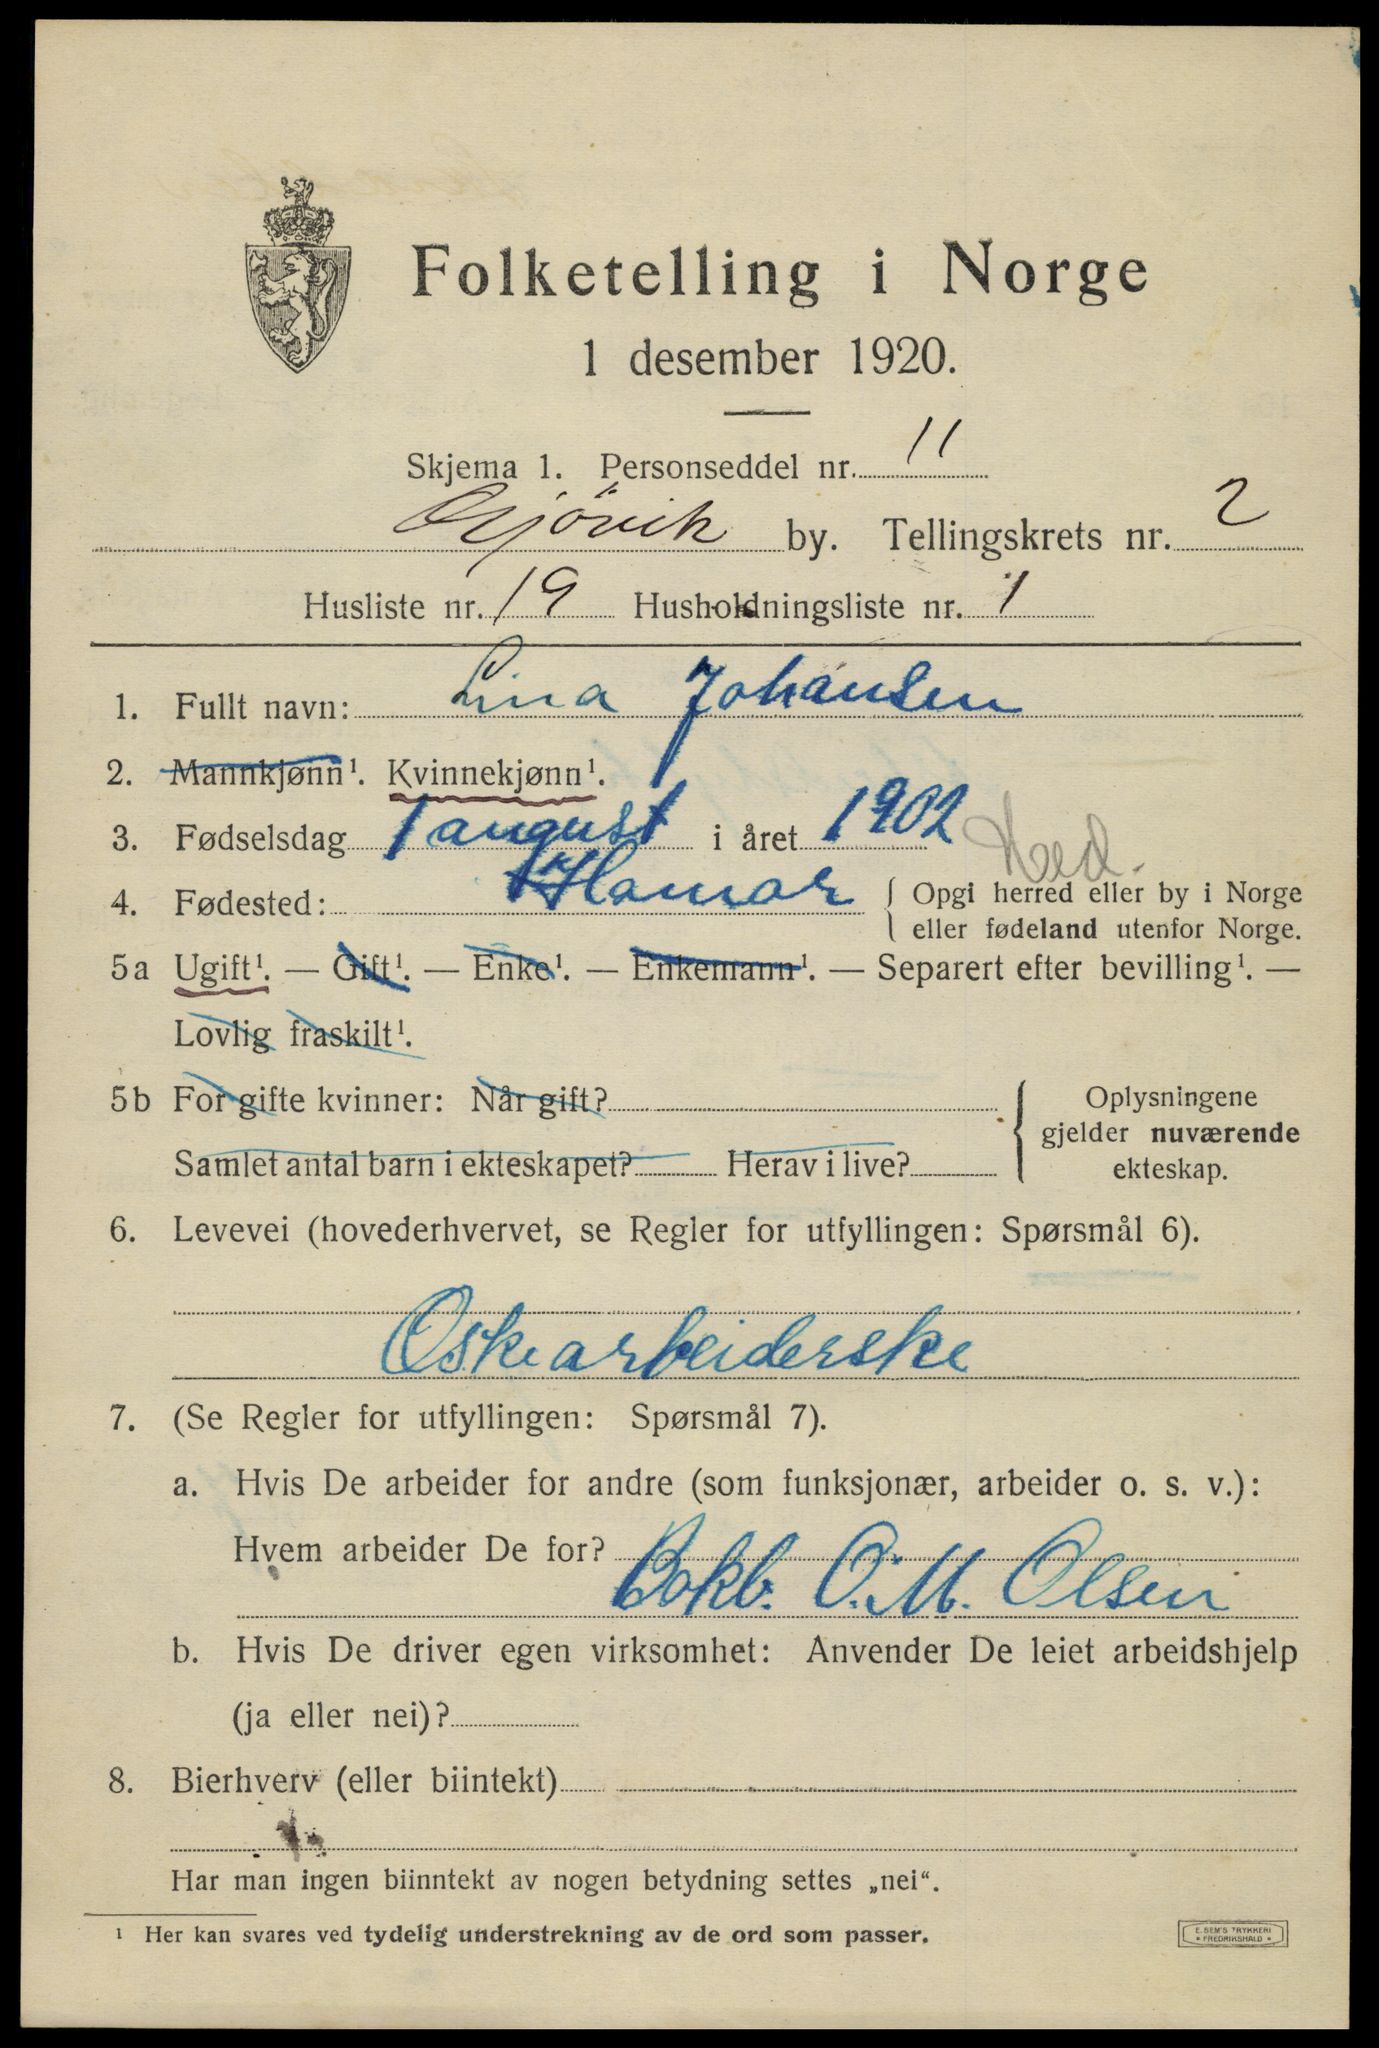 Folketelling i Norge
1 desember 1920.
Skjema 1. Personseddel nr. 11
Gjövik by. Tellingskrets nr. 2
Husliste nr. 19 Husholdningsliste nr. 1
1. Fullt navn: Lina Johansen
2. Mannkjønn¹. Kvinnekjønn¹.
3. Fødselsdag 1 august i året 1902 Hed.
4. Fødested: Hamar { Opgi herred eller by i Norge
eller fødeland utenfor Norge.
5a Ugift¹. — Gift¹. — Enke¹. — Enkemann¹. — Separert efter bevilling¹. —
Lovlig fraskilt¹.
5b For gifte kvinner: Når gift? { Oplysningene
gjelder nuværende
Samlet antal barn i ekteskapet? Herav i live? ekteskap.
6. Levevei (hovederhvervet, se Regler for utfyllingen: Spørsmål 6).
Eskearbeiderske
7. (Se Regler for utfyllingen: Spørsmål 7).
a. Hvis De arbeider for andre (som funksjonær, arbeider o. s. v.):
Hvem arbeider De for? Bokb. O. M. Olsen
b. Hvis De driver egen virksomhet: Anvender De leiet arbeidshjelp
(ja eller nei)?
8. Bierhverv (eller biintekt)
Har man ingen biinntekt av nogen betydning settes „nei“.
¹ Her kan svares ved tydelig understrekning av de ord som passer.
E. SEM'S TRYKKERI
* FREDRIKSHALD *